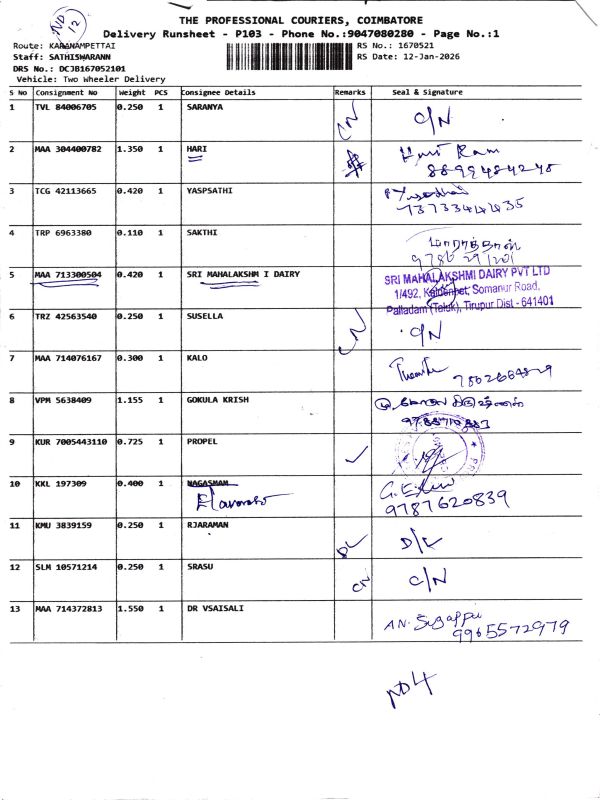 ND
12
THE PROFESSIONAL COURIERS, COIMBATORE
Delivery Runsheet - P103 - Phone No.:9047080280 - Page No.:1
Route: KARANAMPETTAI
RS No.: 1670521
Staff: SATHISWARANN
RS Date: 12-Jan-2026
DRS No.: DCJB167052101
Vehicle: Two Wheeler Delivery
S No Consignment No Weight PCS Consignee Details Remarks Seal & Signature
1 TVL 84006705 0.250 1 SARANYA CN C/N
2 MAA 304400782 1.350 1 HARI Hari Ram
8899484248
3 TCG 42113665 0.420 1 YASPSATHI
7373344435
4 TRP 6963380 0.110 1 SAKTHI
5 MAA 713300504 0.420 1 SRI MAHALAKSHM I DAIRY SRI MAHALAKSHMI DAIRY PVT LTD
1/492, Somanur Road,
Palladam (Taluk), Tirupur Dist - 641401
6 TRZ 42563540 0.250 1 SUSELLA CN C/N
7 MAA 714076167 0.300 1 KALO
8 VPM 5638409 1.155 1 GOKULA KRISH
9 KUR 7005443110 0.725 1 PROPEL
10 KKL 197309 0.400 1 NAGASHAM
9787620839
11 KMU 3839159 0.250 1 RJARAMAN DL D/L
12 SLM 10571214 0.250 1 SRASU CN C/N
13 MAA 714372813 1.550 1 DR VSAISALI AN.
9965572979
ND4